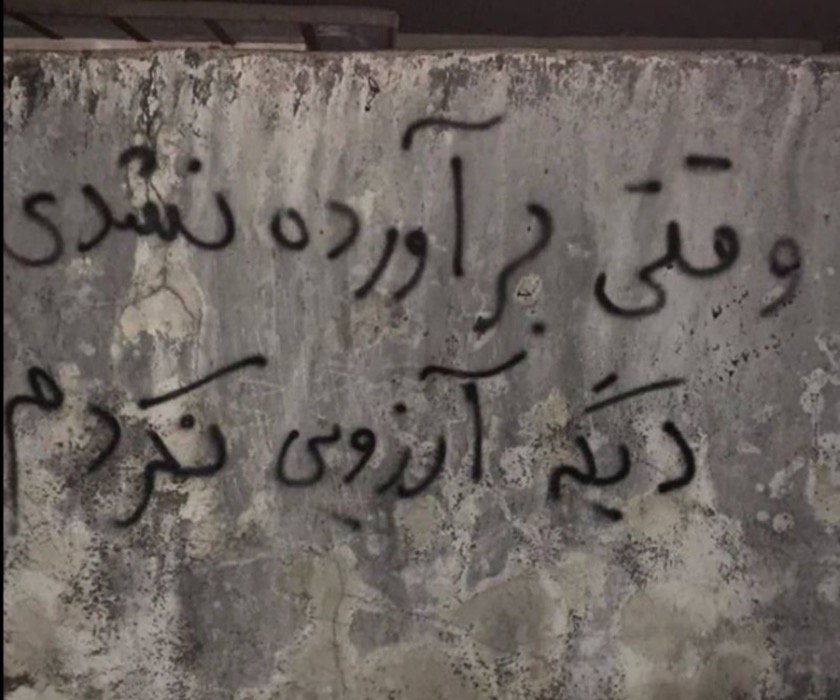 وقتی برآورده نشدی
دیگه آرزویی نکردم